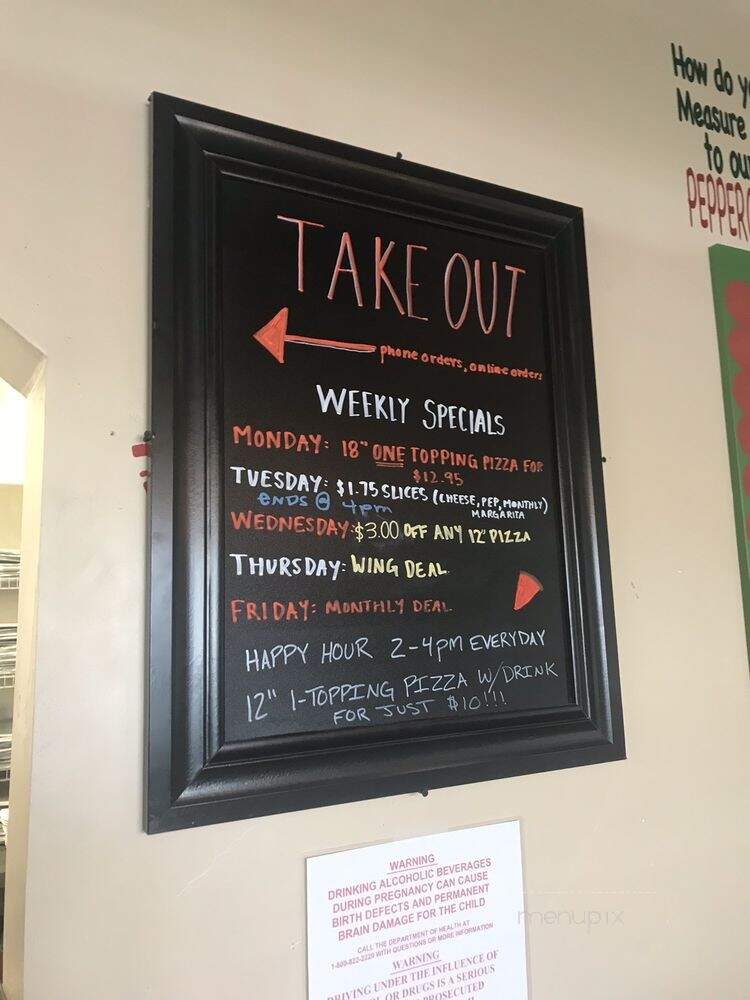 How do
Measure
to
TAKE OUT
phone orders, online orders
WEEKLY SPECIALS
MONDAY: 18" ONE TOPPING PIZZA FOR
$12.95
TUESDAY: $1.75 SLICES (CHEESE, PEP, MONTHLY)
ENDS @ 4pm MARGARITA
WEDNESDAY: $3.00 OFF ANY 12" PIZZA
THURSDAY: WING DEAL
FRIDAY: MONTHLY DEAL
HAPPY HOUR 2-4PM EVERYDAY
12" 1-TOPPING PIZZA W/DRINK
FOR JUST $10!!!
WARNING
DRINKING ALCOHOLIC BEVERAGES
DURING PREGNANCY CAN CAUSE
BIRTH DEFECTS AND PERMANENT
BRAIN DAMAGE FOR THE CHILD
CALL THE DEPARTMENT OF HEALTH AT
1-800-822-2229 WITH QUESTIONS OR MORE INFORMATION
WARNING
DRIVING UNDER THE INFLUENCE OF
OR DRUGS IS A SERIOUS
PROSECUTED
menupix